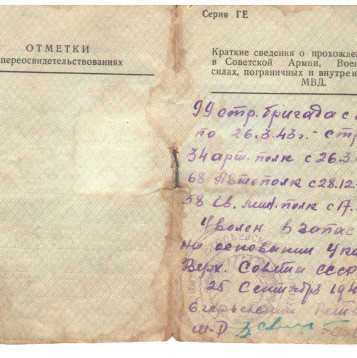 ОТМЕТКИ
переосвидетельствованиях
Серия ГЕ
Краткие сведения о прохожден
в Советской Армии, Воен
силах, пограничных и внутрен
МВД.
99 стр. бригада с
по 26.3.43г. - стр
34 арт. полк с 26.3
68 Автополк с 28.12
58 Гв. мин. полк с 17.
Уволен в запас
на основании Ука
Верх. Совета СССР
25 Сентября 194